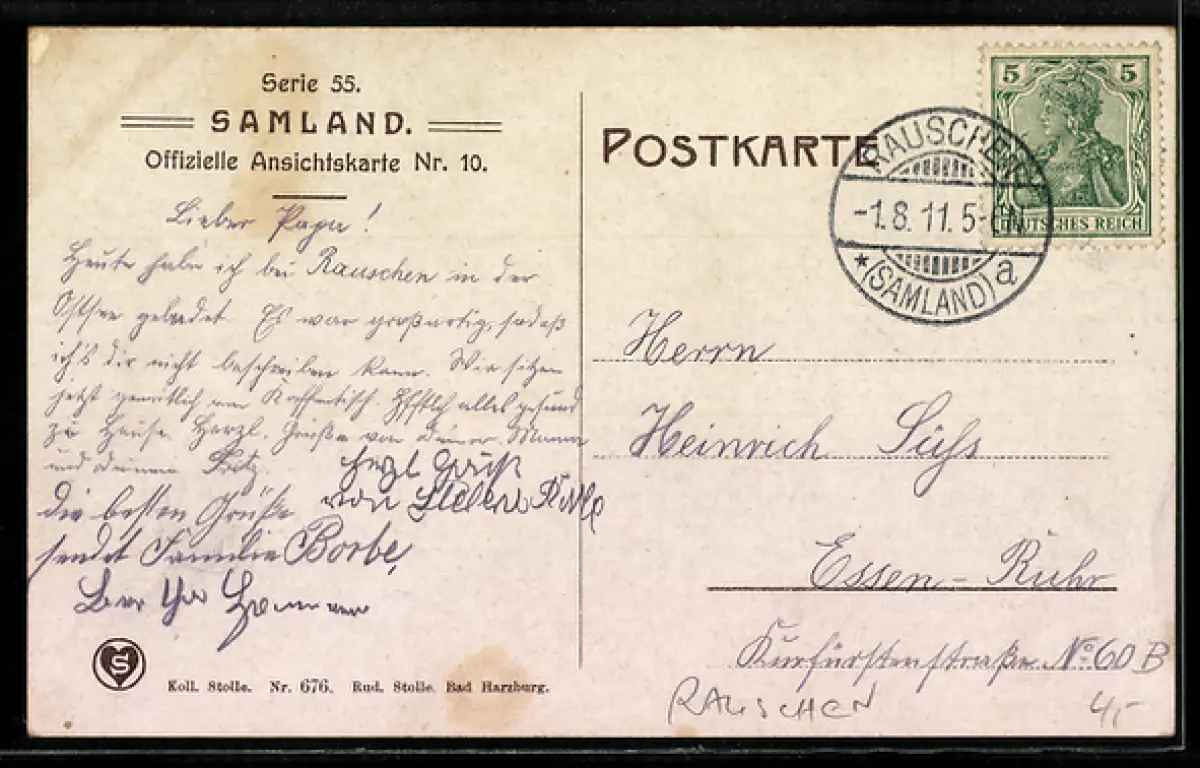 Serie 55.
SAMLAND.
Offizielle Ansichtskarte Nr. 10.
Lieber Papa!
Heute habe ich bei Rauschen in der
Ostsee gebadet. Es war großartig, sodaß
ich's dir nicht beschreiben kann. Wir sitzen
jetzt gemütlich am Kaffeetisch. Hfftlich alles gesund
zu Hause. Herzl. Grüße von deiner Mama
und deinem Fritz
Herzl Gruß
von Helene
die besten Grüße
sendet Familie Borbe,
POSTKARTE
5 5
DEUTSCHES REICH
RAUSCHEN
-1.8.11.5-6N
★(SAMLAND) a
Herrn
Heinrich Sühs
Essen-Ruhr
Kurfürstenstraße No 60 B
S
Koll. Stolle. Nr. 676. Rud. Stolle. Bad Harzburg.
RAUSCHEN
4,-